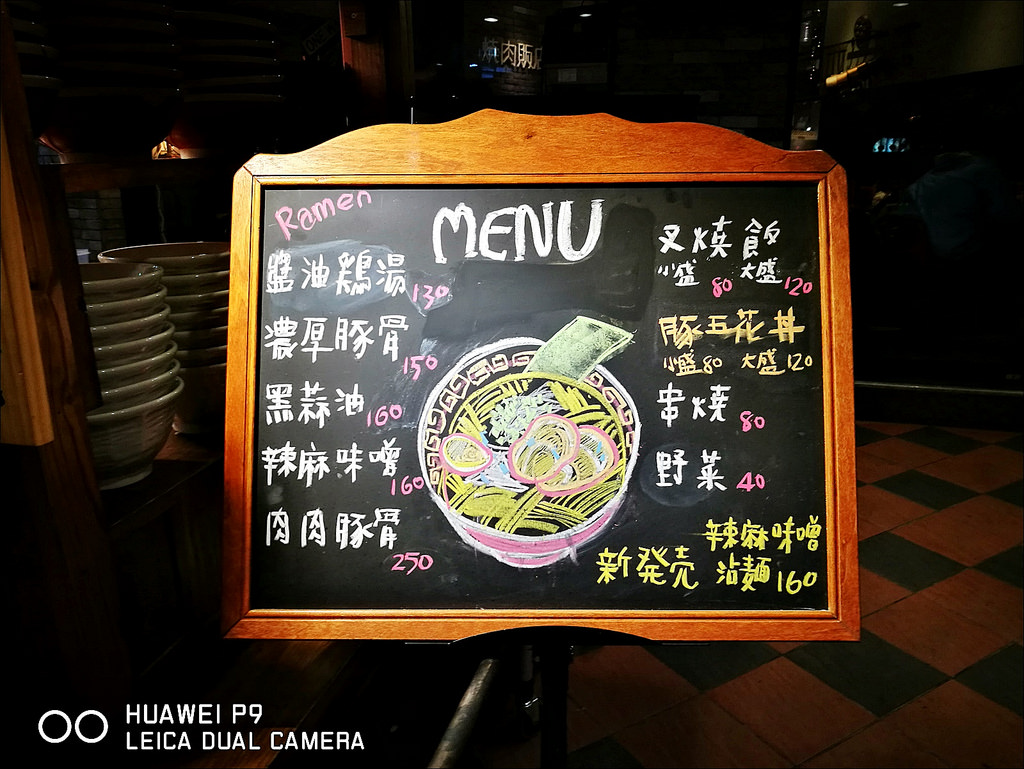 焼肉販店
Ramen
MENU
醬油鶏湯 130
濃厚豚骨 150
黑蒜油 160
辣麻味噌 160
肉肉豚骨 250
叉燒飯
小盛 80 大盛 120
豚五花丼
小盛 80 大盛 120
串燒 80
野菜 40
辣麻味噌
新発売 沾麵 160
HUAWEI P9
LEICA DUAL CAMERA